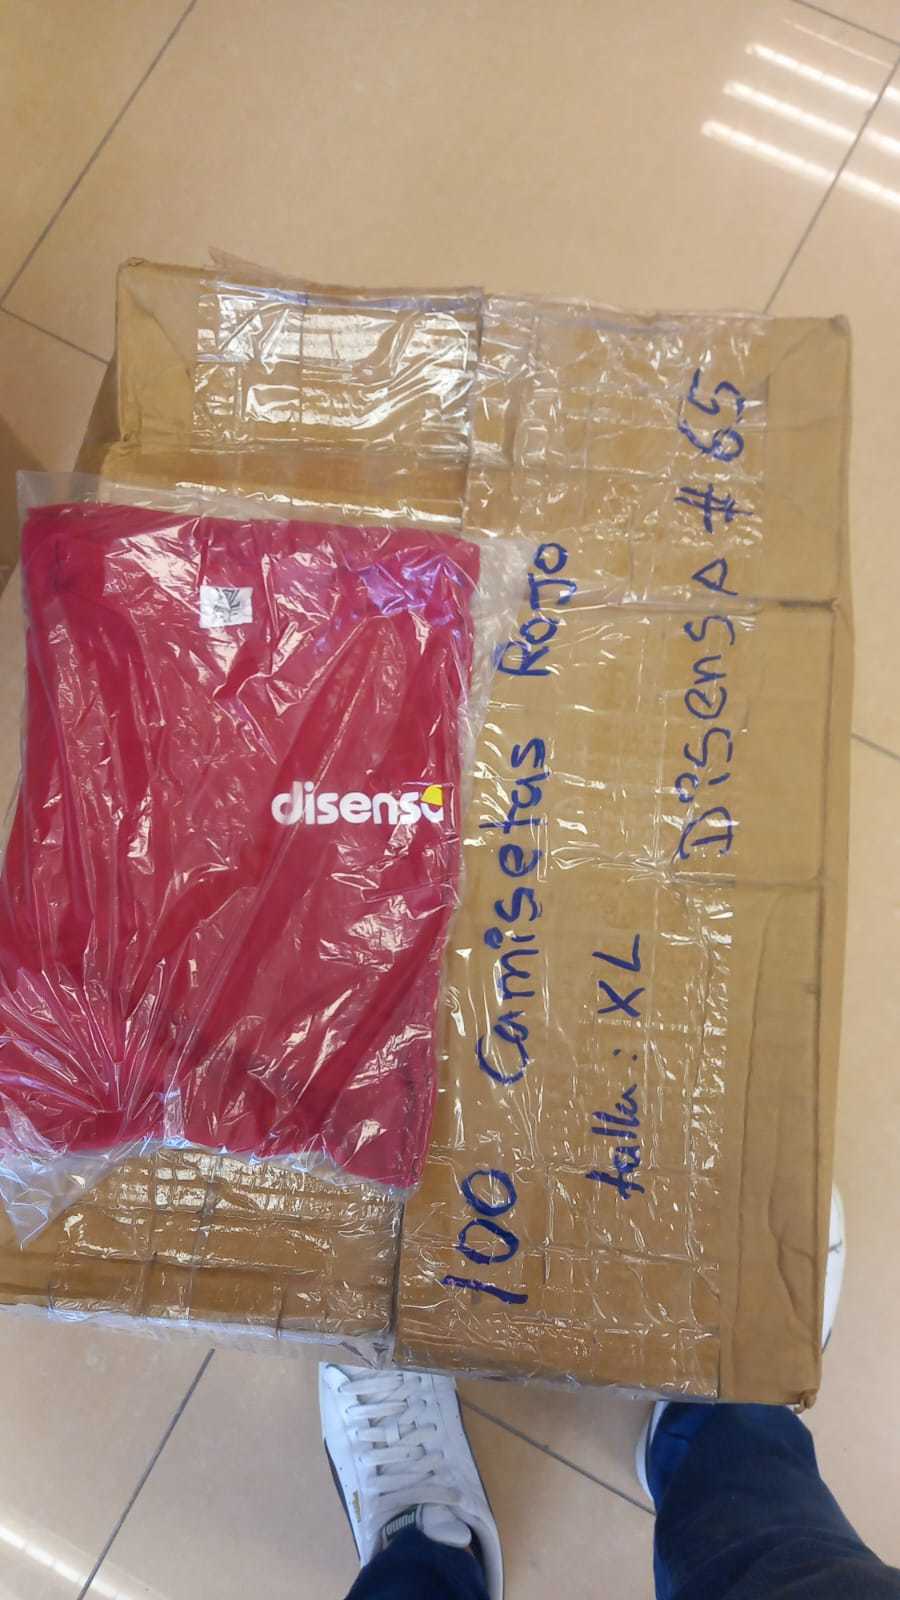 disensa
100 Camisetas Rojo
talla: XL
Disensa # 65
PUMA